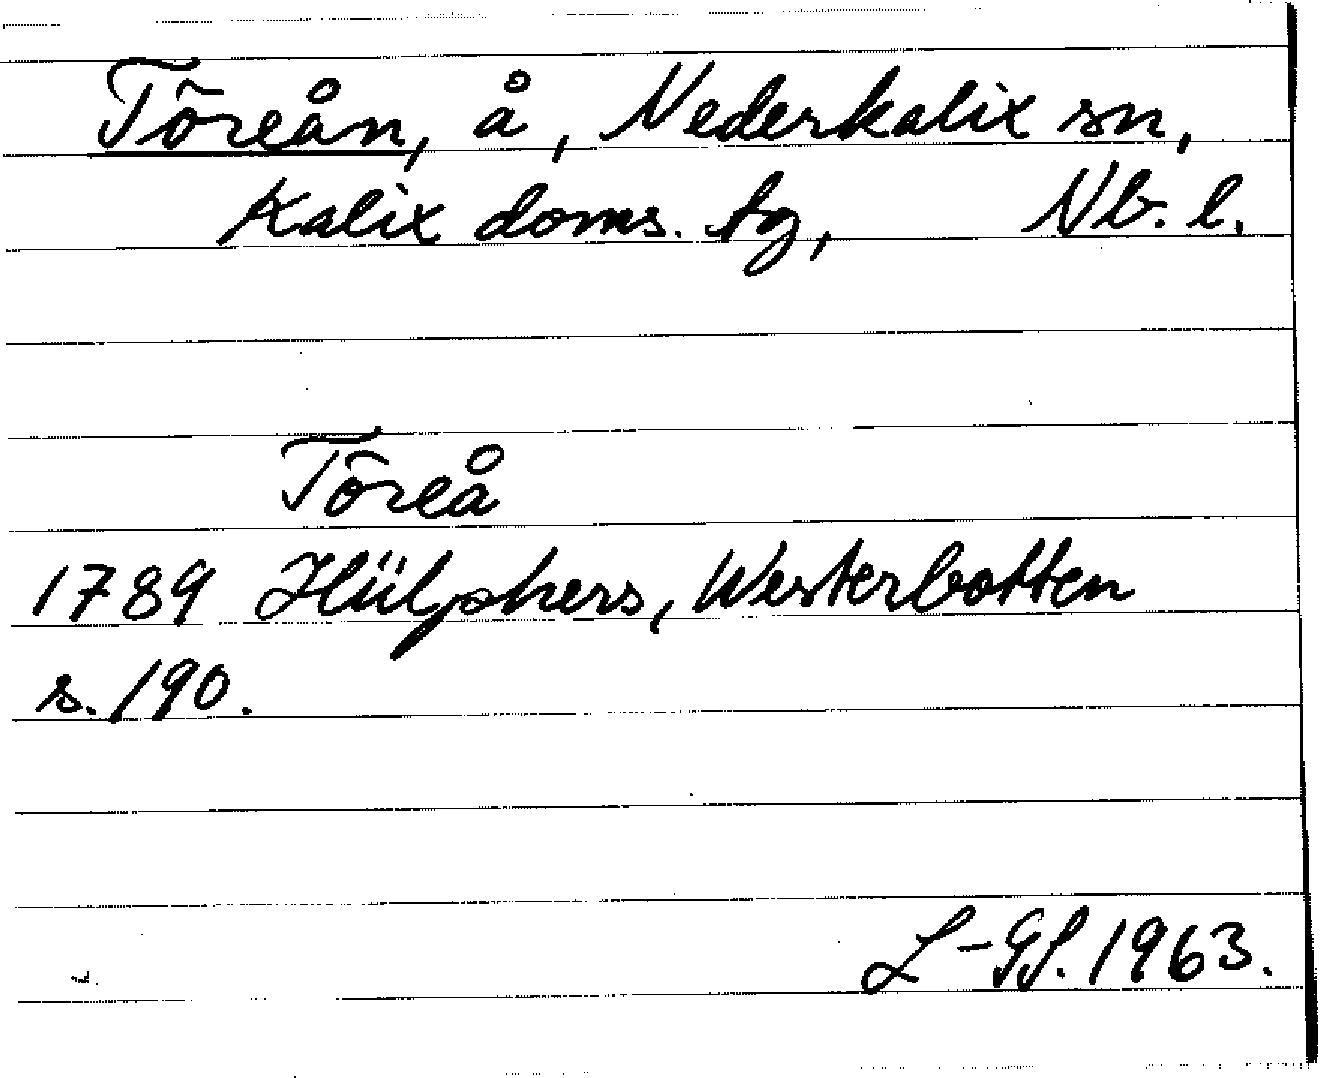 Töreån, å, Nederkalix sn,
Kalix doms. tg, Nb. l.
Töreå
1789 Hülphers, Westerbotten
s. 190.
L-GS. 1963.